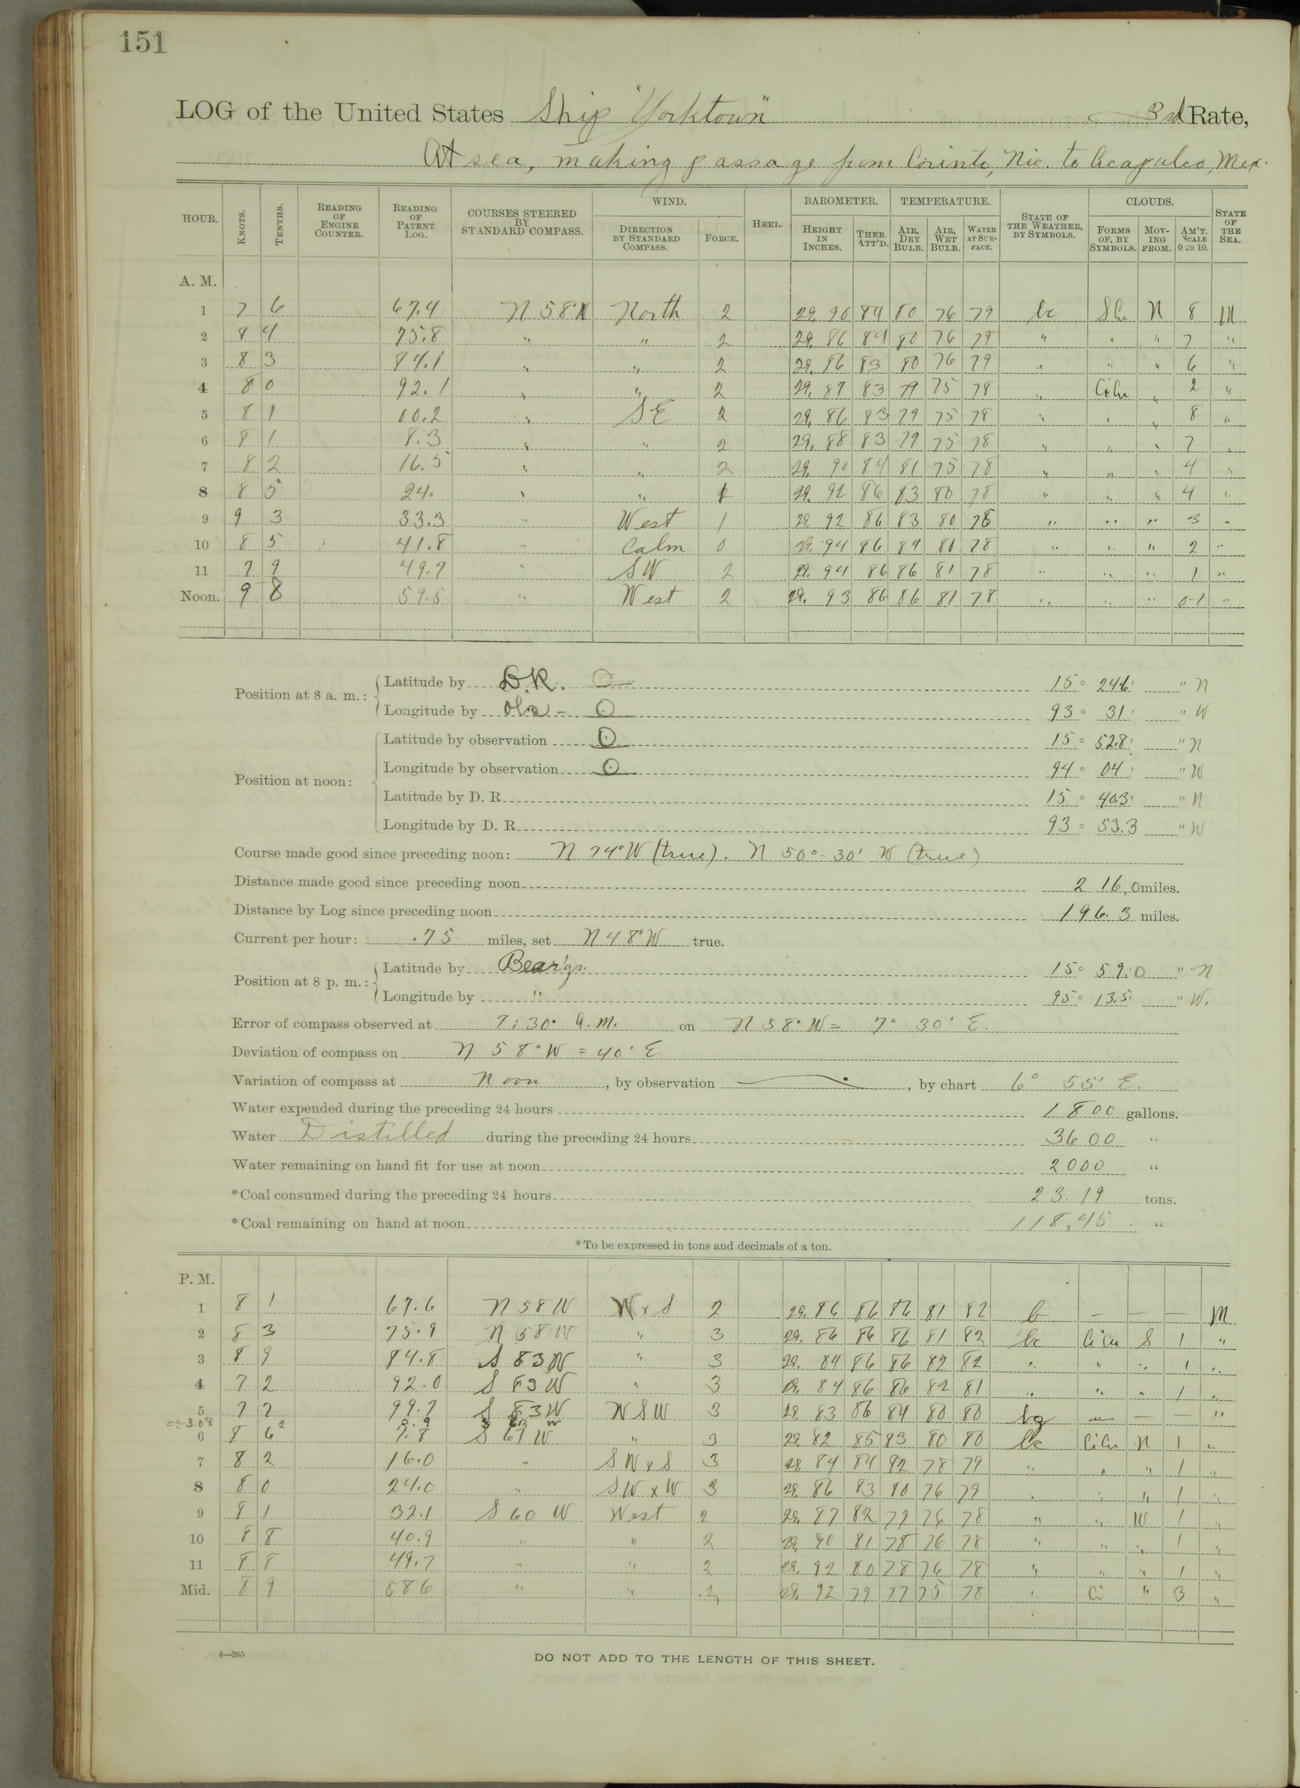 151
LOG of the United States Ship "Yorktown" 3rd Rate,
At sea, making passage from Corinto, Nic. to Acapulco, Mex.
HOUR. KNOTS. TENTHS. READING OF ENGINE COUNTER. READING OF PATENT LOG. COURSES STEERED BY STANDARD COMPASS. WIND. DIRECTION BY STANDARD COMPASS. FORCE. HEEL. BAROMETER. HEIGHT IN INCHES. THER. ATT'D. TEMPERATURE. AIR, DRY BULB. AIR, WET BULB. WATER AT SURFACE. STATE OF THE WEATHER, BY SYMBOLS. CLOUDS. FORMS OF, BY SYMBOLS. MOVING FROM. AM'T. SCALE 0 TO 10. STATE OF THE SEA.
A. M.
1 7 6 67.4 N 58 W North 2 29.90 84 80 76 79 bc N 8 M
2 8 4 75.8 " " 2 29.86 84 80 76 79 " " " 7 "
3 8 3 84.1 " " 2 29.86 83 80 76 79 " " " 6 "
4 8 0 92.1 " " 2 29.87 83 79 75 78 " CiCu " 2 "
5 8 1 00.2 " SE 2 29.86 83 79 75 78 " " " 8 "
6 8 1 8.3 " " 2 29.88 83 79 75 78 " " " 7 "
7 8 2 16.5 " " 2 29.90 84 81 75 78 " " " 4 "
8 8 5 24. " " 1 29.92 86 83 80 78 " " " 4 "
9 9 3 33.3 " West 1 29.92 86 83 80 78 " " " 3 "
10 8 5 41.8 " Calm 0 29.94 86 84 81 78 " " " 2 "
11 7 9 49.7 " SW 2 29.94 86 86 81 78 " " " 1 "
Noon. 9 8 59.5 " West 2 29.93 86 86 81 78 " " " 0-1 "
Position at 8 a. m.: Latitude by D.R. 15° 24.6' " N
Longitude by Obs - 93° 31' " W
Position at noon: Latitude by observation 15° 52.8' " N
Longitude by observation 94° 04' " W
Latitude by D. R. 15° 40.3' " N
Longitude by D. R. 93° 53.3 " W
Course made good since preceding noon: N 74° W (true). N 50° 30' W (true)
Distance made good since preceding noon 216.0 miles.
Distance by Log since preceding noon 196.3 miles.
Current per hour: .75 miles, set N 48° W true.
Position at 8 p. m.: Latitude by Bear'gs. 15° 59.0 " N
Longitude by " 95° 13.5' " W.
Error of compass observed at 7:30 a.m. on N 58° W = 7° 30' E.
Deviation of compass on N 58° W = 40' E
Variation of compass at Noon, by observation —, by chart 6° 55' E.
Water expended during the preceding 24 hours 1800 gallons.
Water Distilled during the preceding 24 hours 3600 "
Water remaining on hand fit for use at noon 2000 "
*Coal consumed during the preceding 24 hours 23.19 tons.
*Coal remaining on hand at noon 118.45 "
*To be expressed in tons and decimals of a ton.
P. M.
1 8 1 67.6 N 58 W W x S 2 29.86 86 86 81 82 b — — — M
2 8 3 75.9 N 58 W " 3 29.86 86 86 81 82 bc CiCu S 1 "
3 8 9 84.8 S 83 W " 3 29.84 86 86 82 82 " " " 1 "
4 7 2 92.0 S 83 W " 3 29.84 86 86 82 81 " " " 1 "
5 7 7 99.7 S 83 W WSW 3 29.83 86 84 80 80 — — — "
6 8 6 7.8 S 67 W " 3 29.82 85 83 80 80 bc CiCu N 1 "
7 8 2 16.0 " SW x S 3 29.84 84 82 78 79 " " " 1 "
8 8 0 24.0 " SW x W 3 29.86 83 80 76 79 " " " 1 "
9 8 1 32.1 S 60 W West 2 29.87 82 79 76 78 " " W 1 "
10 8 8 40.9 " " 2 29.90 81 78 76 78 " " " 1 "
11 8 8 49.7 " " 2 29.92 80 78 76 78 " " " 1 "
Mid. 8 9 58.6 " " 2 29.92 79 77 75 78 " Ci " 3 "
4—265
DO NOT ADD TO THE LENGTH OF THIS SHEET.